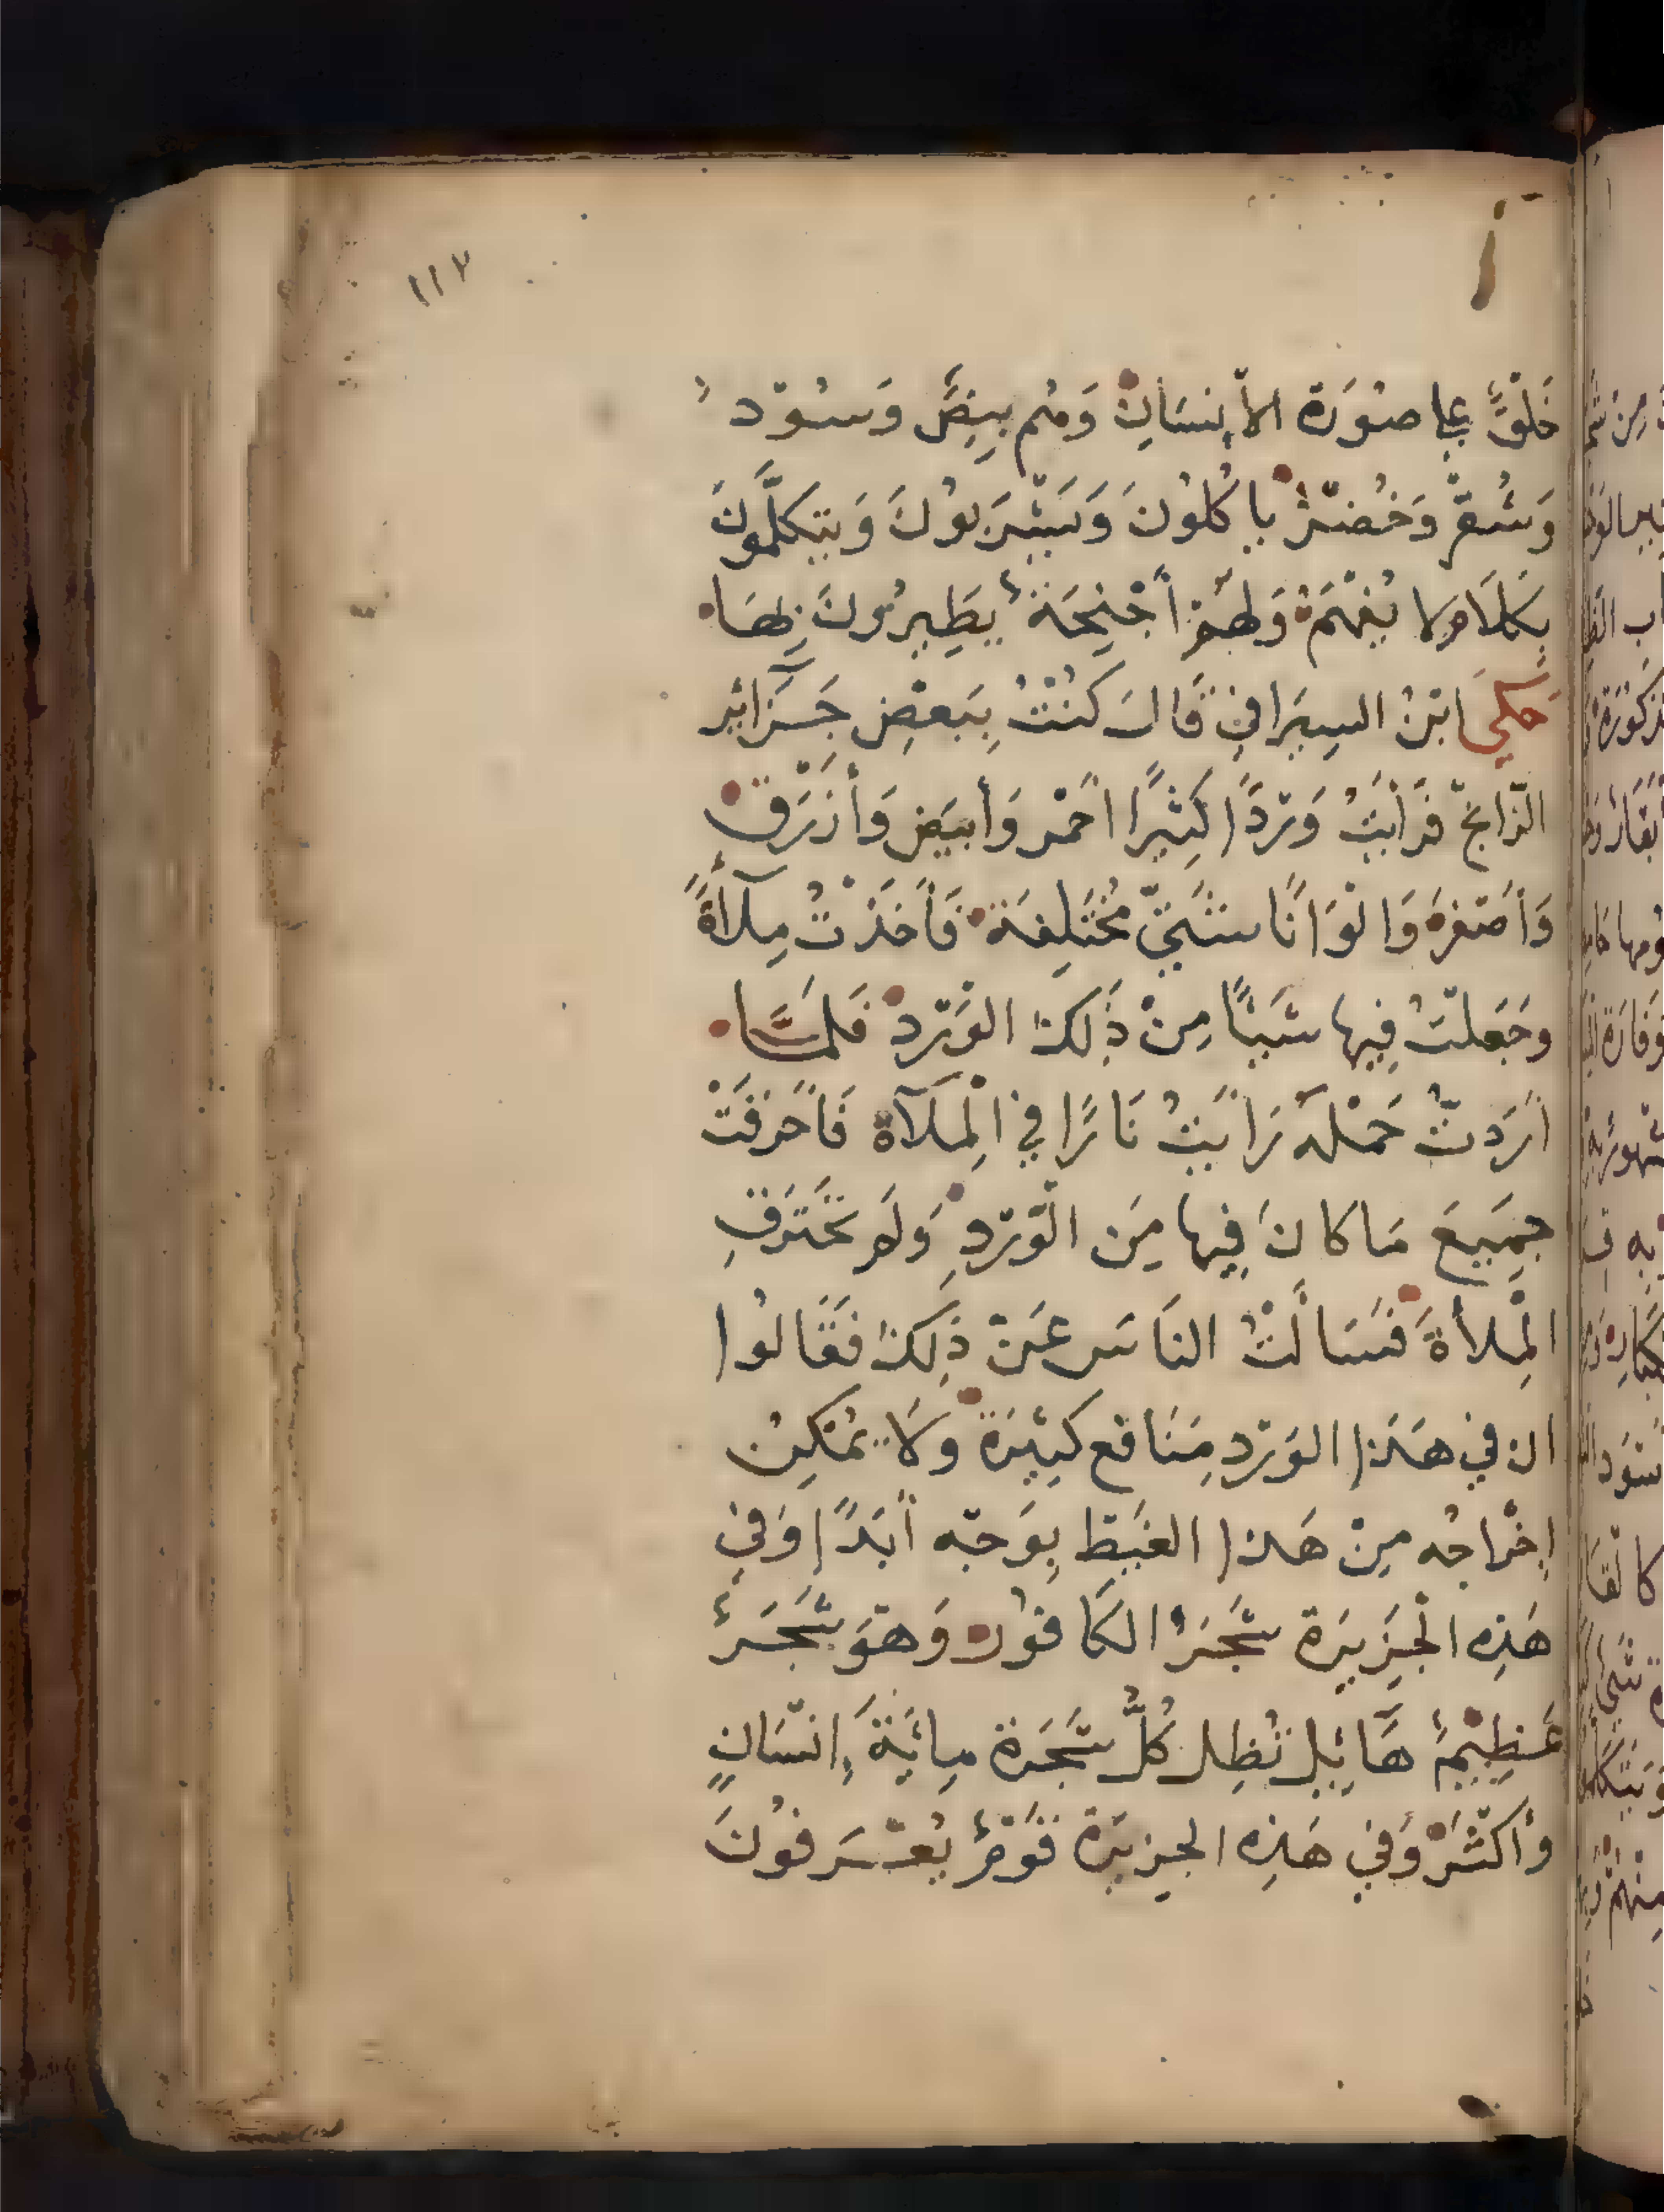 ١١٧
خَلْقٌ على صُورَة الأنسَانِ وَمنهم بِيضٌ وَسُودٌ
وَشُقْرٌ وَخُضْرٌ ياكُلُونَ وَيَشْرَبُونَ وَيتكلَّمُونَ
بِكَلَامٍ لا يُفْهَمُ وَلَهُمْ أَجْنِحَةٌ يَطِيرُونَ بِهَا
حَكَى ابْنُ السِيرَافِي قَالَ كُنْتُ بِبَعْضِ جَزَائِر
الزَّابِج فَرَأَيْتُ وَرْدًا كَثِيرًا احْمَر وَأبيَض وَأَزْرَق
وَأصْفَرَ وَالْوَانًا شَتَّى مُخْتَلِفَة فَأَخَذْتُ مِلَآءَةً
وجَعَلْتُ فِيها شَيئًا مِنْ ذَلِكَ الوَرْدِ فَلَمَّا
أرَدتُ حَمْلَهُ رَايَتُ نَارًا فِي الْمِلَآة فَأَحْرَقَتْ
جمِيعَ مَا كَانَ فِيها مِنَ الْوَرْدِ وَلَم تَحْتَرِقِ
الْمِلَأةَ فَسَالْتُ النَاسَ عَنْ ذَلِكَ فَقَالُوا
ان في هَذَا الوَرْدِ مَنَافِع كَثِيرَة وَلَا يُمْكِنُ
إخْرَاجُه مِنْ هَذا الغَيْط بِوَجْه أَبَدًا وَفي
هَذِه الْجَزِيرَة شَجَرُ الكَافُور وَهُوَ شَجَرٌ
عَظِيمٌ هَائِل تُظِل كُلُّ شَجَرة مِائَةَ إنْسَانٍ
وأكْثَرُ وَفِي هَذِه الجزيرَة قَوْمٌ يُعْرَفُونَ